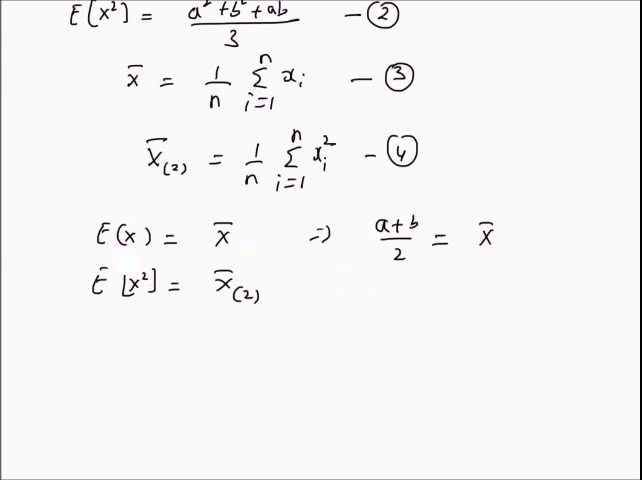 E[x²] = a² + b² + ab / 3 — ②
x̄ = 1/n Σ_{i=1}^{n} x_i — ③
X̄_(2) = 1/n Σ_{i=1}^{n} x_i² — ④
E(x) = x̄ ⇒ a+b / 2 = x̄
E[x²] = x̄_(2)